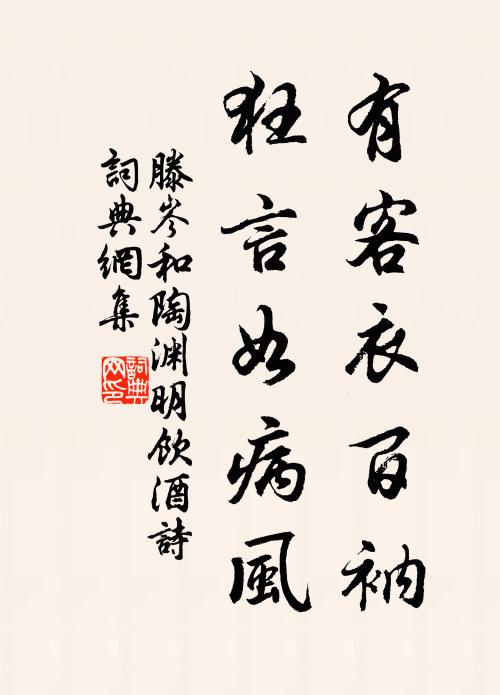 有客衣百衲
狂言如病風
滕岑和陶淵明飲酒詩
詞典網集
詞典网印